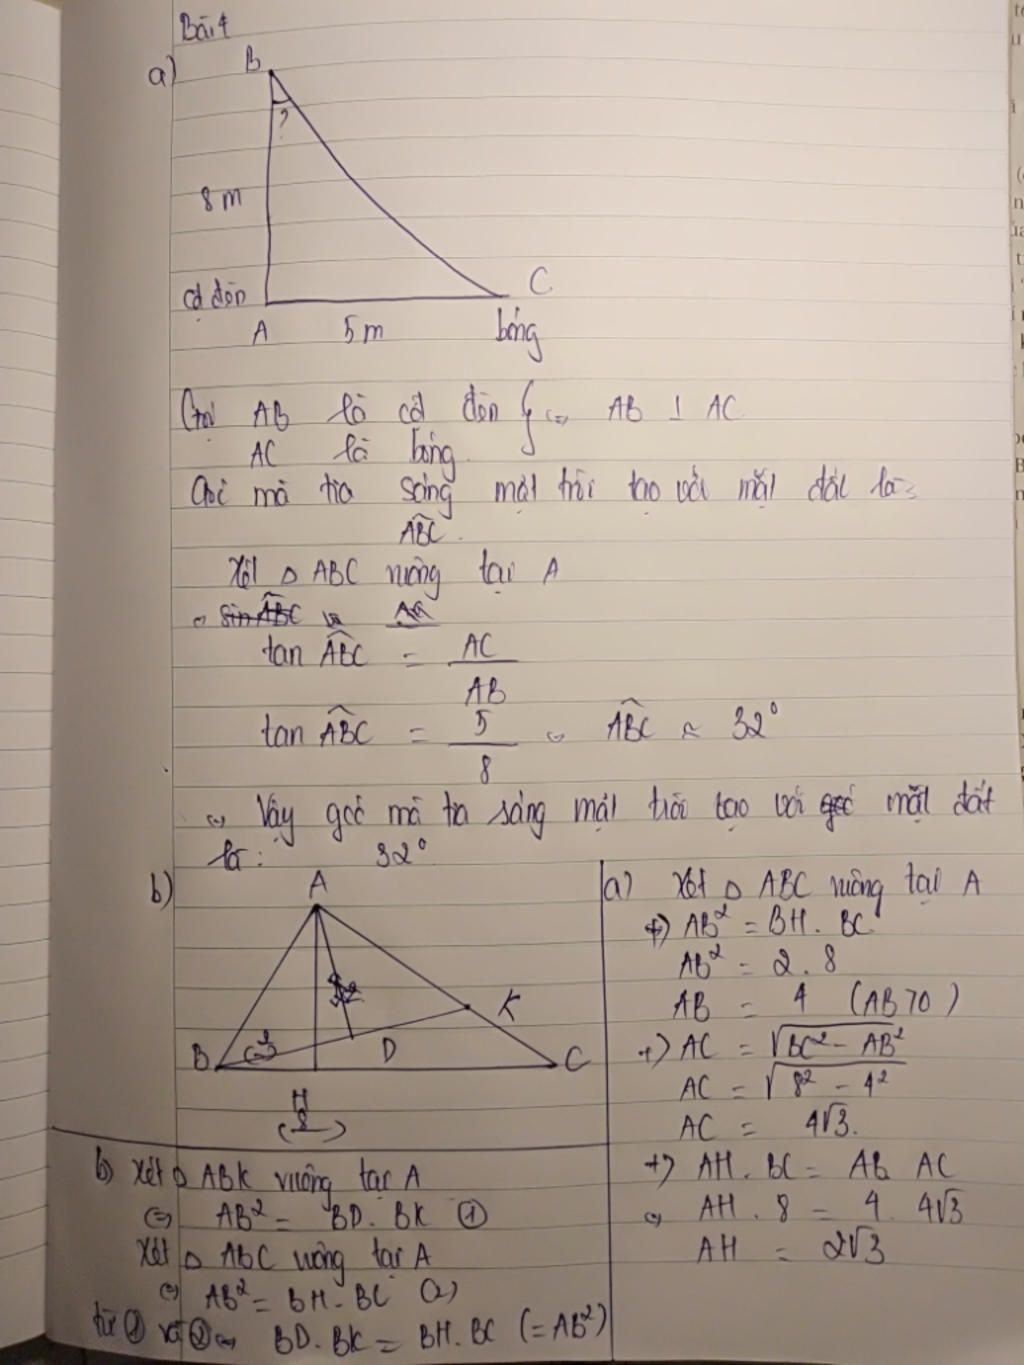 Bài 4
a)
B
?
8 m
cột đèn
C
A
5 m
bóng
Gọi AB là cột đèn } => AB ⊥ AC
AC là bóng
Gọi mà tia sáng mặt trời tạo với mặt đất là:
ABC
Xét Δ ABC vuông tại A
tan ABC = AC / AB
tan ABC = 5 / 8 => ABC ≈ 32°
=> Vậy góc mà tia sáng mặt trời tạo với mặt đất
là: 32°
b)
A
B
D
K
C
H
8
a) Xét Δ ABC vuông tại A
+) AB² = BH . BC
AB² = 2 . 8
AB = 4 (AB > 0)
+) AC = √BC² - AB²
AC = √8² - 4²
AC = 4√3.
+) AH . BC = AB . AC
=> AH . 8 = 4 . 4√3
AH = 2√3
b) Xét Δ ABK vuông tại A
=> AB² = BD . BK ①
Xét Δ ABC vuông tại A
=> AB² = BH . BC (2)
từ ① và ② => BD . BK = BH . BC (= AB²)